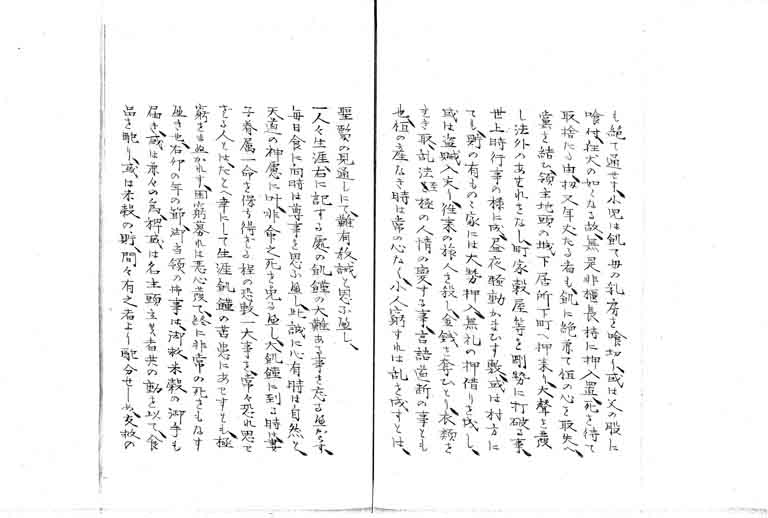 も絶て通せす、小児は飢て母の乳房を喰切り、或は父の股に
喰付、在犬の如くなる故、無是非櫃長持に押入置、死を待て
取捨たる由、扨又年丈たる者も飢に絶兼て恒の心を取失へ、
黨を結ひ領主地頭の城下居所下町へ押来り、大聲を發
し法外のあはれをなし、町家穀屋等を剛勢に打破る事、
世上時行事の様に成、昼夜騒動かまひすし敷、或は村方に
ても貯の有ものゝ家には大勢押入、無礼の押借りを成し、
或は盗賊入夫り、往来の旅人を殺し金銭を奪ひとり衣類を
剥き取、乱法至極の人情の変する事、言語道断の事とも
也、恒の産なき時は常の心なく、小人窮すれは乱を成すとは、
聖賢の見通しにて難有教誡と思ふ遍し、
一人々生涯右に記する處の飢饉の大難ある事を忘る遍からす、
毎日食に向時は尊事を思ふ遍し、此誠に心有時は自然と
天道の神慮に叶、非命之死を免る遍し、大飢饉に到る時は妻
子眷属一命を保ち得さる程の恐敷一大事を、常々恐れ思て
をる人とはたとへ幸にして生涯飢饉の苦患にあはすとも、極
窮をまぬかれす、困窮募れは悪心發て、終に非常の死をもなす
遍き也、右卯の年の節、御当領の御事は、御救米穀の御手も
届き、或は粟々の為稗、或は名主頭立候者共の働を以て、食
品を配り、或は米穀の貯、間々有之者より配分せしめ、友救の